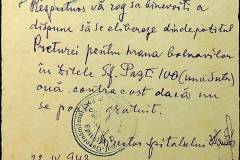 Respectuos vă rog să binevoiți a
dispune să se elibereze din depozitul
Preturei pentru hrana bolnavilor
în zilele Sf. Paști 100 (una sută)
ouă contra cost dacă nu
se poate gratuit.
Director Spitalului
22.IV.943